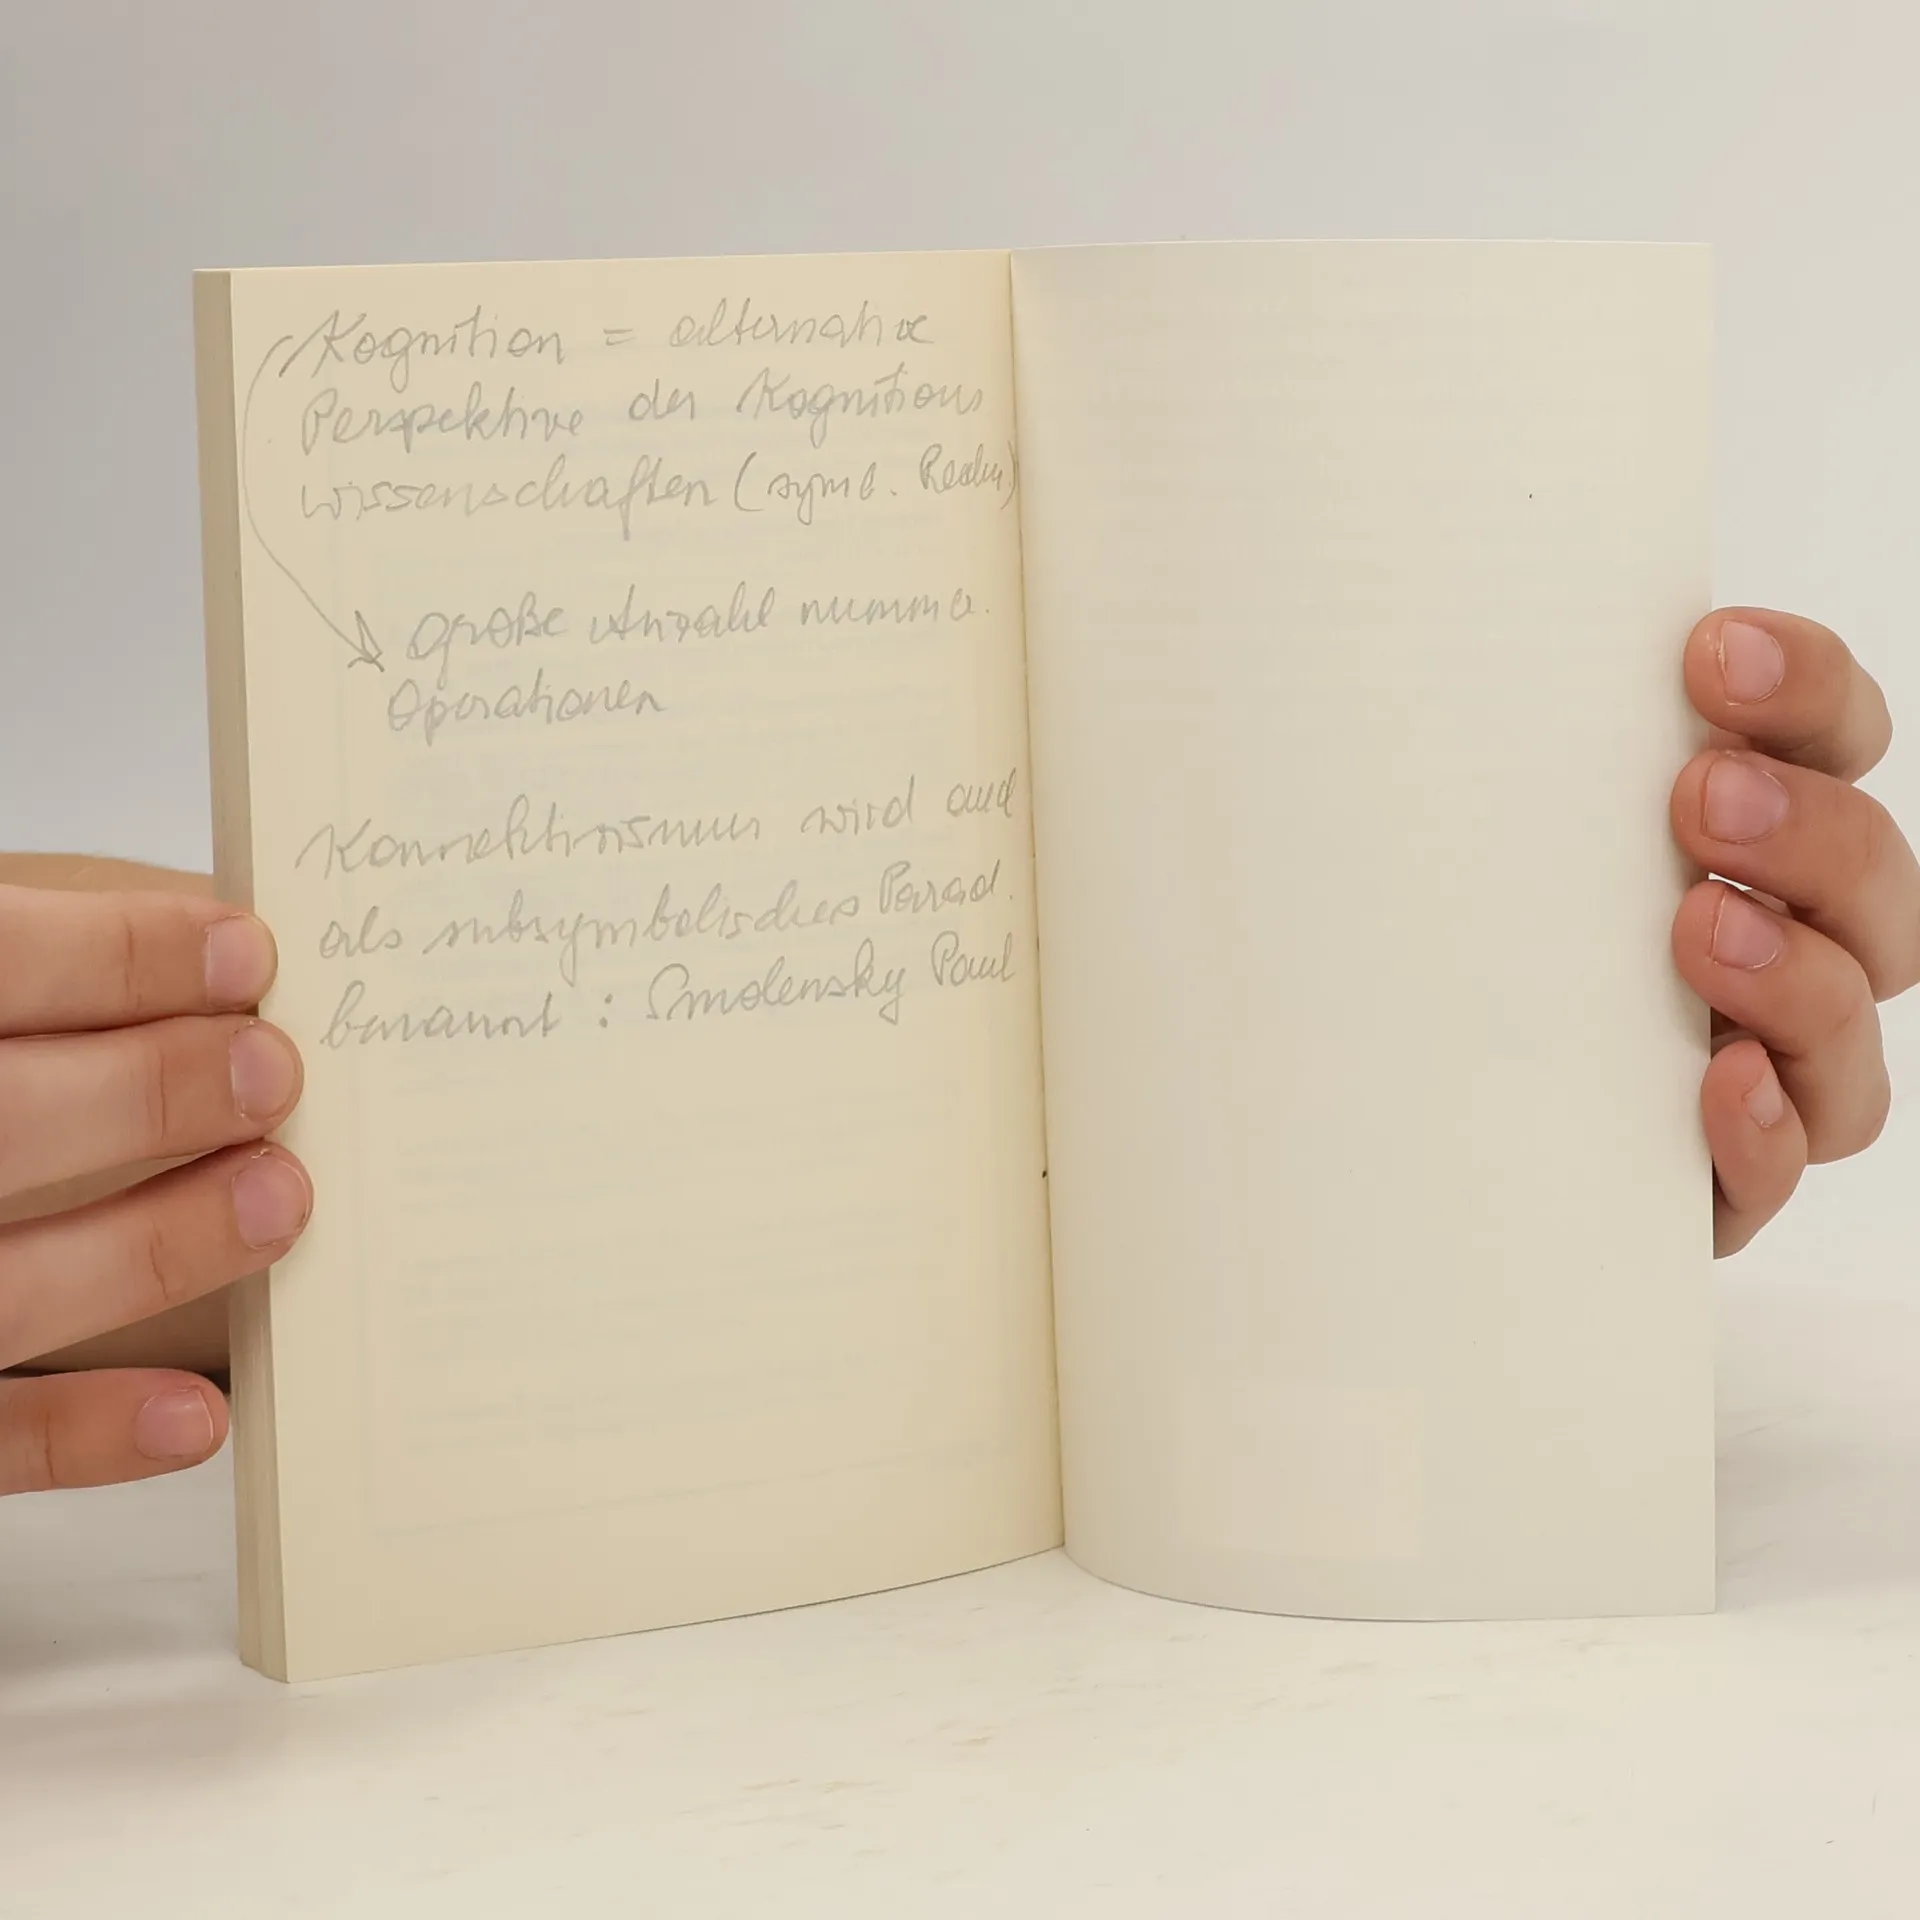 Kognition = alternative
Perspektive der Kognitions
wissenschaften (symb.
große Anzahl numme.
Operationen
Konnektivismus wird auch
als subsymbolisches Parad.
benannt : Smolensky Paul